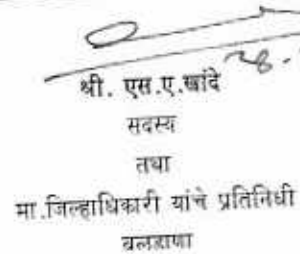 श्री. एस.ए.खांदे
सदस्य
तथा
मा.जिल्हाधिकारी यांचे प्रतिनिधी
बुलडाणा